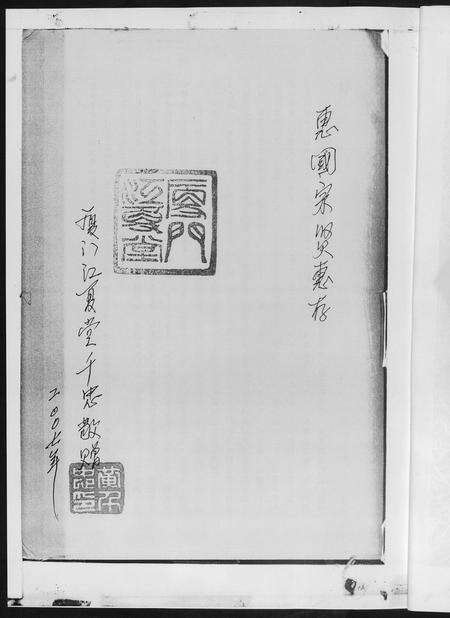 惠國宗賢惠存
廈門
江夏堂
厦门江夏堂千忠敬贈
二〇〇七年
黄千
忠印